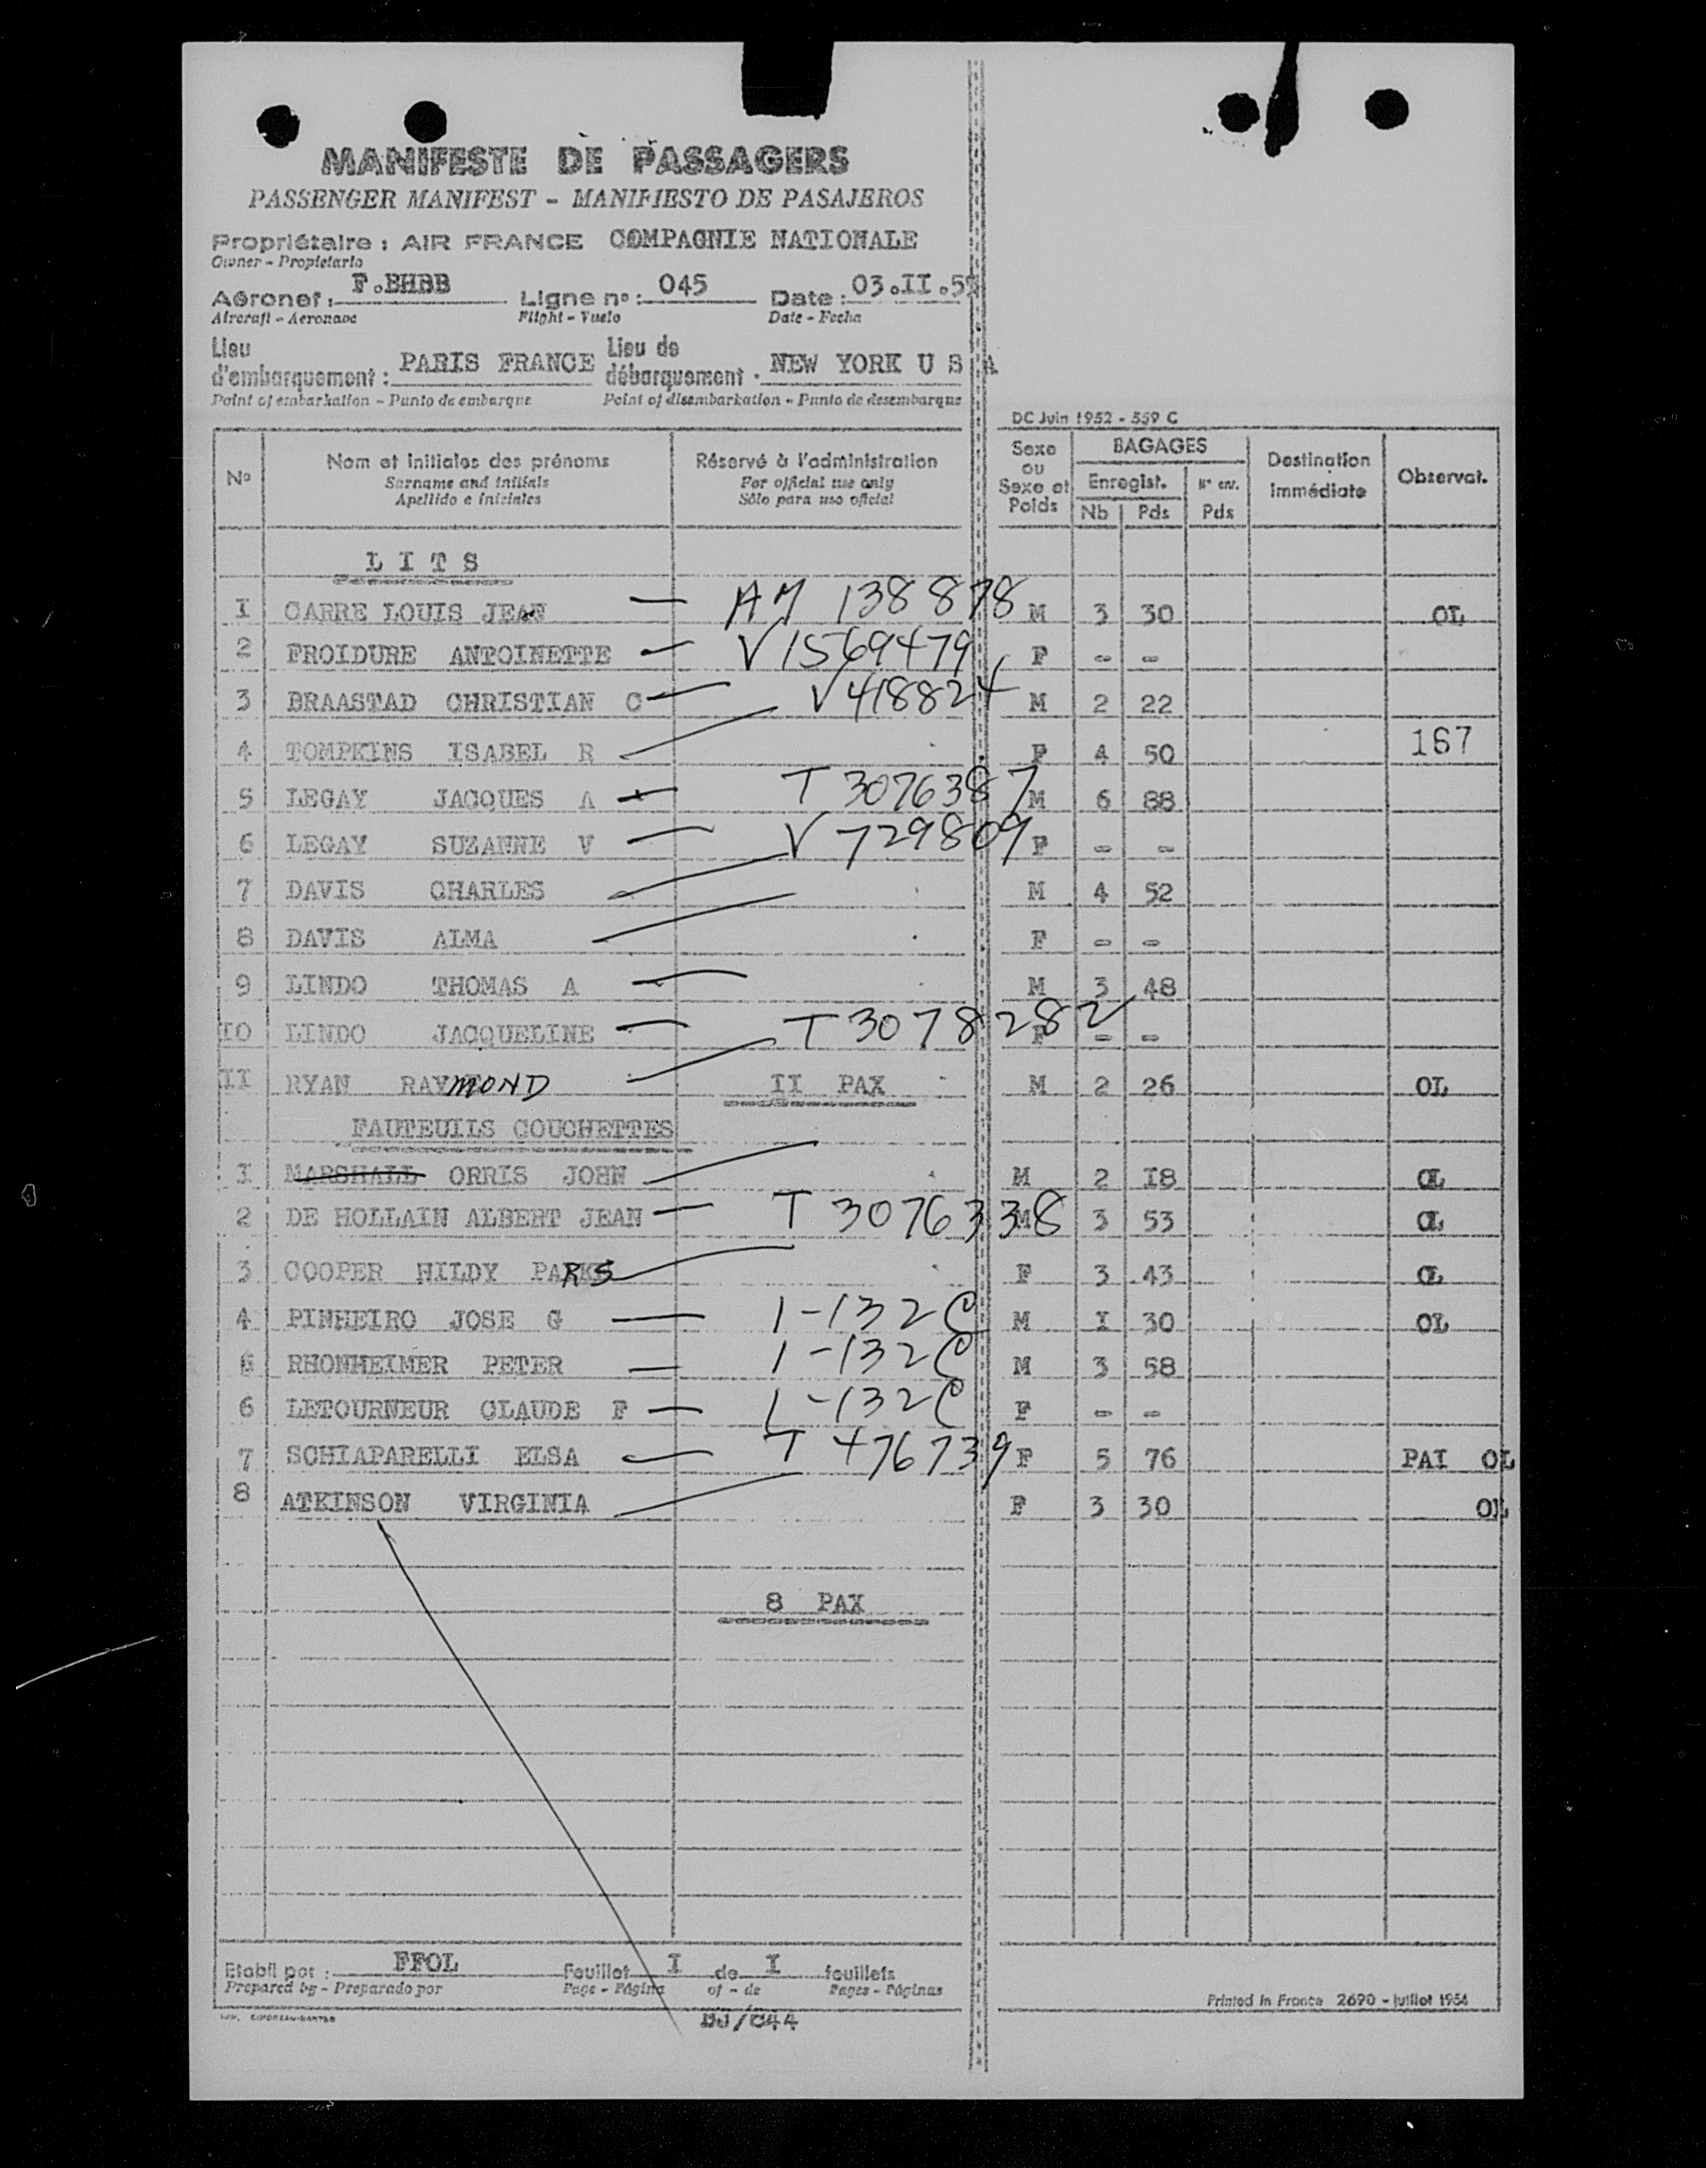 MANIFESTE DE PASSAGERS
PASSENGER MANIFEST - MANIFIESTO DE PASAJEROS
Propriétaire : AIR FRANCE COMPAGNIE NATIONALE
Owner - Propietario
Aéronef : F.BHBB Ligne n° : 045 Date : 03.II.5
Aircraft - Aeronave Flight - Vuelo Date - Fecha
Lieu d'embarquement : PARIS FRANCE Lieu de débarquement : NEW YORK U S A
Point of embarkation - Punto de embarque Point of disembarkation - Punto de desembarque
DC Juin 1952 - 559 C
N° Nom et initiales des prénoms Réservé à l'administration Sexe ou Sexe et Poids BAGAGES Destination immédiate Observat.
Surname and initials For official use only Enregist. N° enr.
Apellido e iniciales Sólo para uso oficial Nb Pds Pds
L I T S
I CARRE LOUIS JEAN — AM 138878 M 3 30 OL
2 FROIDURE ANTOINETTE — V1569479 F - -
3 BRAASTAD CHRISTIAN C — V418824 M 2 22
4 TOMPKINS ISABEL R F 4 50 167
5 LEGAY JACQUES A — T 3076387 M 6 88
6 LEGAY SUZANNE V — V 729809 F - -
7 DAVIS CHARLES M 4 52
8 DAVIS ALMA F - -
9 LINDO THOMAS A — M 3 48
IO LINDO JACQUELINE — T3078282 F - -
II RYAN RAYMOND II PAX M 2 26 OL
FAUTEUILS COUCHETTES
I MARSHALL ORRIS JOHN M 2 I8 OL
2 DE HOLLAIN ALBERT JEAN — T 3076338 M 3 53 OL
3 COOPER HILDY PARKS F 3 43 OL
4 PINHEIRO JOSE G — 1-132C M I 30 OL
5 RHONHEIMER PETER — 1-132C M 3 58
6 LETOURNEUR CLAUDE F — 1-132C F - -
7 SCHIAPARELLI ELSA — T 476739 F 5 76 PAI OL
8 ATKINSON VIRGINIA F 3 30 OL
8 PAX
Etabli par : FFOL Feuillet I de I feuillets
Prepared by - Preparado por Page - Página of - de Pages - Páginas
Printed in France 2690 - juillet 1954